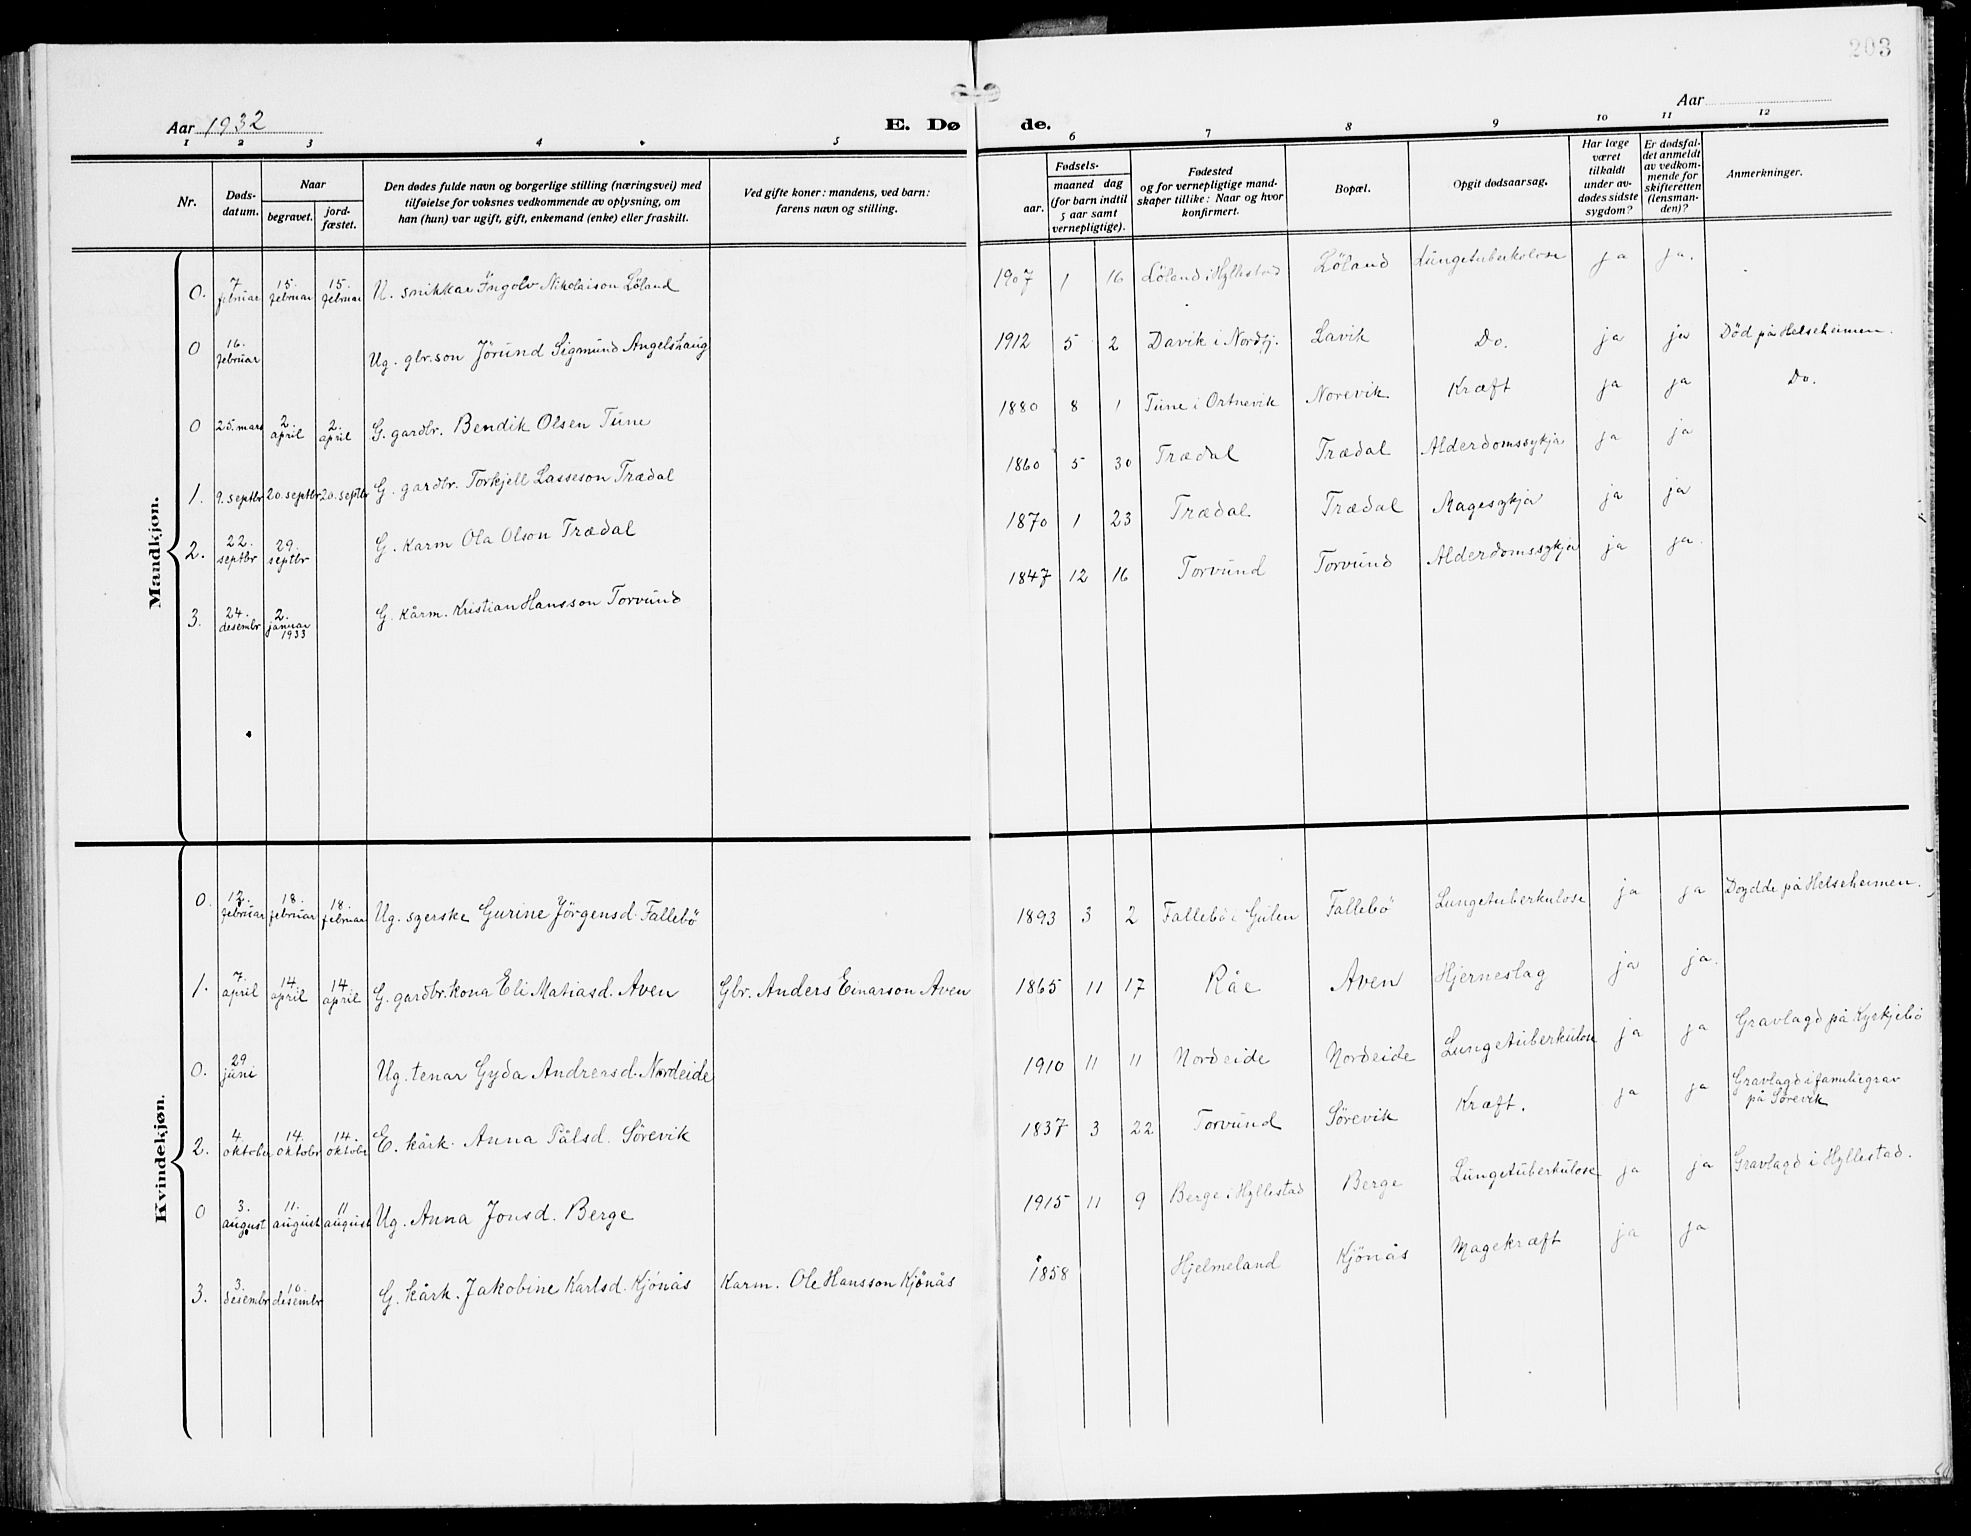 203
Aar 1932
E. Dø
de.
Aar
1 2 3 4 5 6 7 8 9 10 11 12
Nr.
Døds-
datum.
Naar
begravet.
jord-
fæstet.
Den dødes fulde navn og borgerlige stilling (næringsvei) med
tilføielse for voksnes vedkommende av oplysning, om
han (hun) var ugift, gift, enkemand (enke) eller fraskilt.
Ved gifte koner: mandens, ved barn:
farens navn og stilling.
Fødsels-
aar.
maaned dag
(for barn indtil
5 aar samt
vernepligtige).
Fødested
og for vernepligtige mand-
skaper tillike: Naar og hvor
konfirmert.
Bopæl.
Opgit dødsaarsag.
Har læge
været
tilkaldt
under av-
dødes sidste
sygdom?
Er dødsfal-
det anmeldt
av vedkom-
mende for
skifteretten
(lensman-
den)?
Anmerkninger.
Mandkjøn.
0. 7 februar 15. februar 15. februar U. snikkar Ingolv Nikolaison Löland 1907 1 16 Löland i Hyllestad Löland Lungetuberkolose ja ja.
0 16. februar Ug. gbr.son Jörund Sigmund Angelshaug 1912 5 2 Davik i Nordfj. Lavik Do. ja ja Död på Helseheimen.
0 25. mars 2. april 2. april G. gardbr. Bendik Olsen Tune 1880 8 1 Tune i Ortnevik Norevik Kræft ja ja Do.
1. 9. septbr 20. septbr 20. septbr G. gardbr. Torkjell Lasseson Trædal 1860 5 30 Trædal Trædal Alderdomssykja ja ja
2. 22. septbr 29. septbr G. karm Ola Olson Trædal 1870 1 23 Trædal Trædal Magesykja ja ja
3. 24. desembr 2. januar 1933 G. kårm. Kristian Hansson Torvund 1847 12 16 Torvund Torvund Alderdomssykja ja ja.
Kvindekjøn.
0. 12. februar 18. februar 18. februar Ug. syerske Gurine Jörgensd. Fallebö 1893 3 2 Fallebö i Gulen Fallebö Lungetuberkulose ja ja Doydde på Helseheimen.
1. 7. april 14 april 14 april G. gardbr.kona Eli Matiasd. Aven Gbr. Anders Einarson Aven 1865 11 17 Råe Aven Hjerneslag ja ja.
0. 29 juni Ug. tenar Gyda Andreasd. Nordeide 1910 11 11 Nordeide Nordeide Lungetuberkulose ja ja Gravlagd på Kyrkjebö
2. 4. oktober 14. oktobr 14. oktobr E. kårk. Anna Pålsd. Sörevik 1837 3 22 Torvund Sörevik Kræft. ja ja Gravlagd i familiegrav
på Sörevik
0 3. august 11. august 11 august Ug. Anna Jonsd. Berge 1915 11 9 Berge i Hyllestad Berge Lungetuberkulose ja ja Gravlagd i Hyllestad.
3. 3. desembr 10. desembr G. kårk. Jakobine Karlsd. Kjönås Karm. Ole Hansson Kjönås 1858 Hjelmeland Kjönås Magekræft ja ja